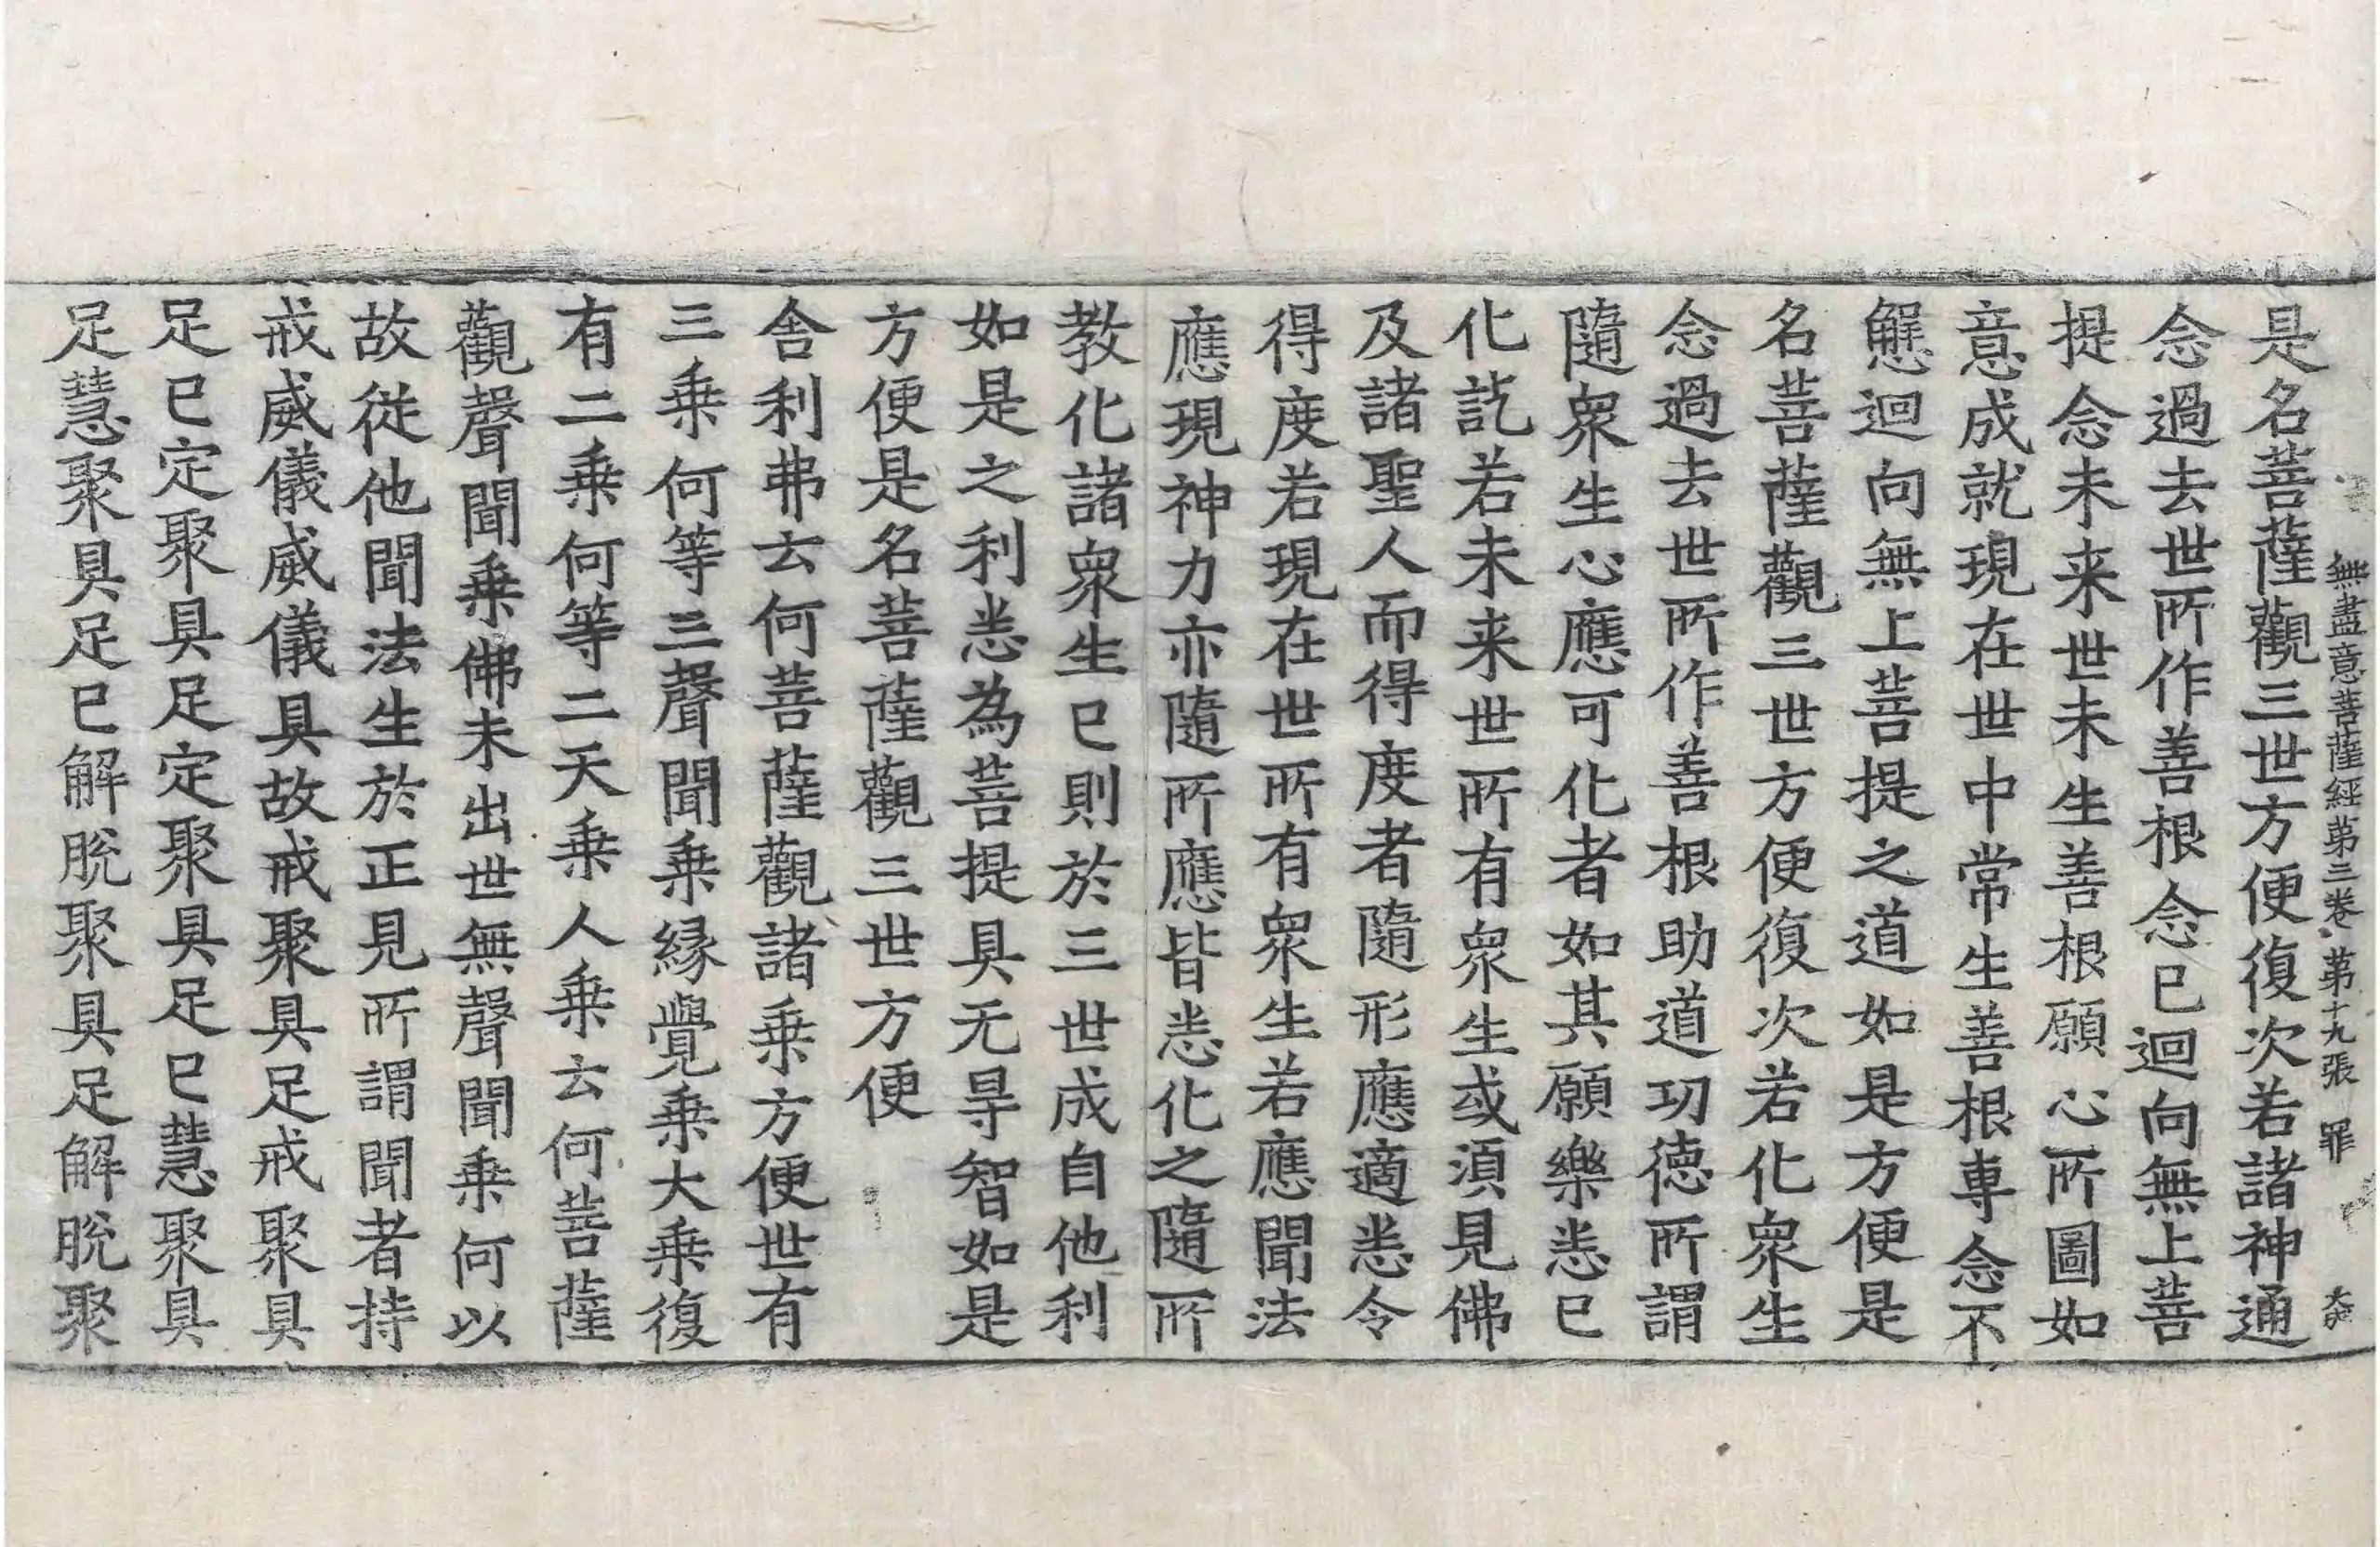 無盡意菩薩經第三卷 第十九張 罪
是名菩薩觀三世方便復次若諸神通
念過去世所作善根念已迴向無上菩
提念未来世未生善根願心所圖如
意成就現在世中常生善根專念不
懈迴向無上菩提之道如是方便是
名菩薩觀三世方便復次若化衆生
念過去世所作善根助道功德所謂
隨衆生心應可化者如其願樂悉已
化訖若未来世所有衆生或須見佛
及諸聖人而得度者隨形應適悉令
得度若現在世所有衆生若應聞法
應現神力亦隨所應皆悉化之隨所
教化諸衆生已則於三世成自他利
如是之利悉為菩提具无㝵智如是
方便是名菩薩觀三世方便
舎利弗云何菩薩觀諸乗方便世有
三乗何等三聲聞乗縁覺乗大乗復
有二乗何等二天乗人乗云何菩薩
觀聲聞乗佛未出世無聲聞乗何以
故從他聞法生於正見所謂聞者持
戒威儀威儀具故戒聚具足戒聚具
足已定聚具足定聚具足已慧聚具
足慧聚具足已解脫聚具足解脫聚